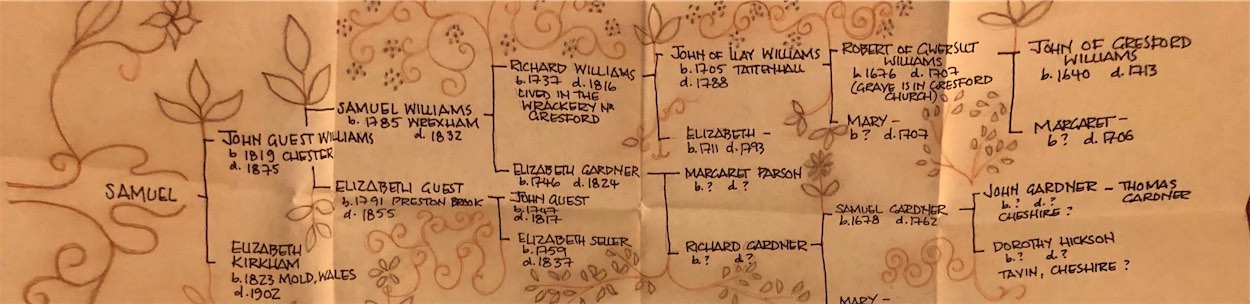 SAMUEL
JOHN GUEST WILLIAMS
b 1819 CHESTER
d. 1875
ELIZABETH
KIRKHAM
b. 1823 MOLD, WALES
d. 1902
SAMUEL WILLIAMS
b. 1785 WREXHAM
d. 1832
ELIZABETH GUEST
b. 1791 PRESTON BROOK
d. 1855
RICHARD WILLIAMS
b. 1737 d. 1816
LIVED IN THE
WRACKERY NR
GRESFORD
ELIZABETH GARDNER
b. 1746 d. 1824
JOHN GUEST
b. 1747
d. 1817
ELIZABETH SELLER
b. 1759
d. 1837
JOHN OF LLAY WILLIAMS
b. 1705 TATTENHALL
d. 1788
ELIZABETH -
b. 1711 d. 1793
MARGARET PARSON
b. ? d. ?
RICHARD GARDNER
b. ? d. ?
ROBERT OF GWERSULT
WILLIAMS
b. 1676 d. 1707
(GRAVE IS IN GRESFORD
CHURCH)
MARY -
b. ? d. 1707
SAMUEL GARDNER
b. 1678 d. 1762
MARY -
JOHN OF GRESFORD
WILLIAMS
b. 1640 d. 1713
MARGARET -
b. ? d. 1706
JOHN GARDNER - THOMAS
GARDNER
b. ? d. ?
CHESHIRE ?
DOROTHY HICKSON
b. ? d. ?
TAVIN, CHESHIRE ?